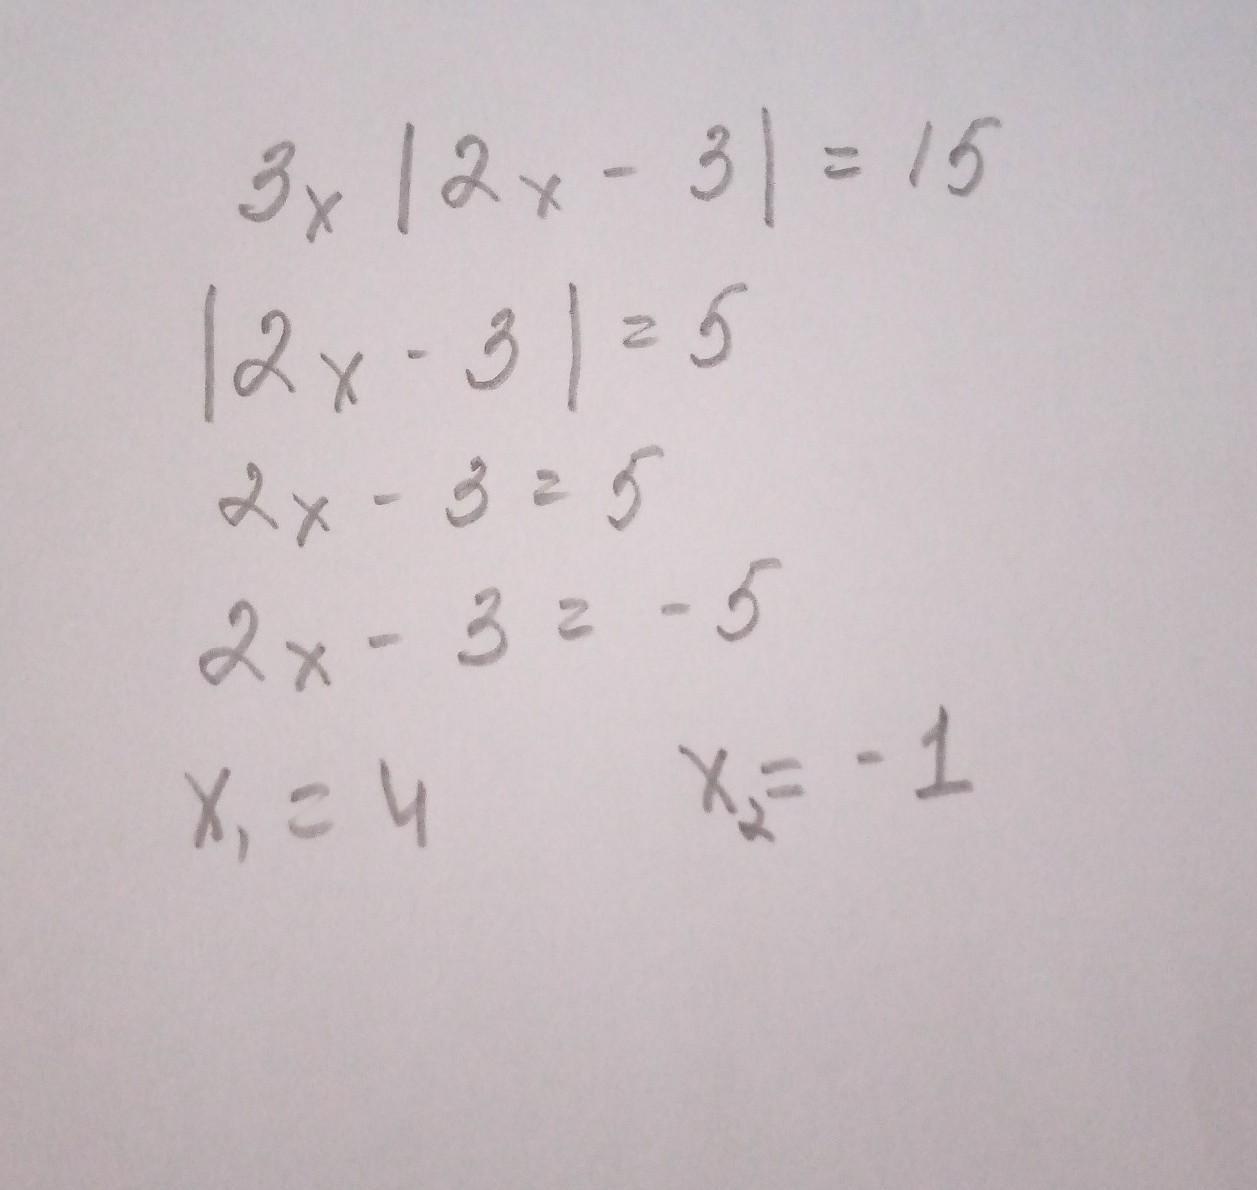 3x |2x - 3| = 15
|2x - 3| = 5
2x - 3 = 5
2x - 3 = -5
x₁ = 4 x₂ = -1